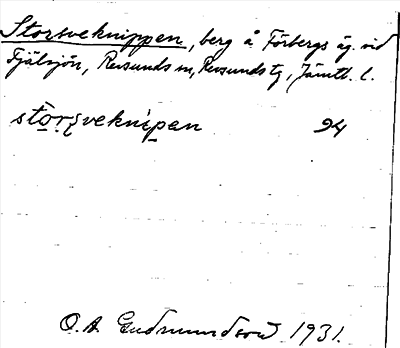 Storsveknippen, berg å Förbergs äg. vid
Fjälsjön, Revsunds sn, Revsunds tg, Jämtl. l.
storsveknipen 94
O. A. Gudmundsson 1931.